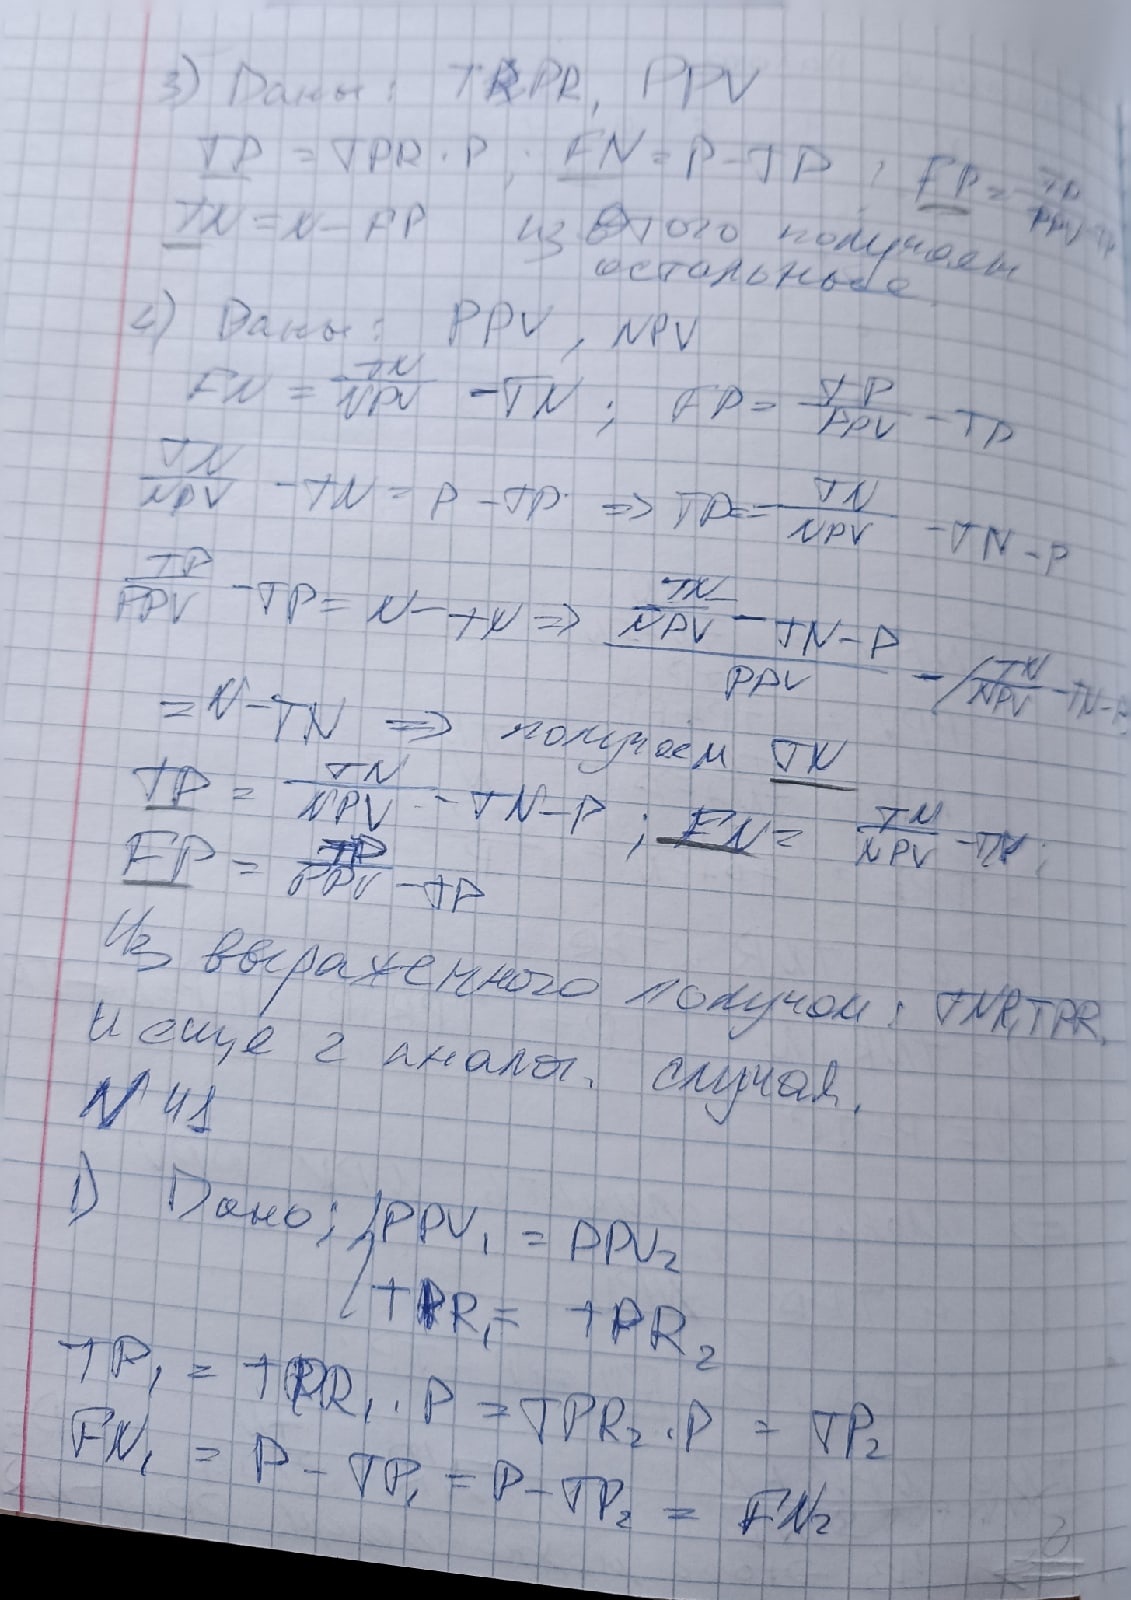 3) Даны: TPR, PPV
TP = TPR · P ; FN = P - TP ; FP = TP / PPV - TP
TN = N - FP из этого получаем
остальные
4) Даны: PPV, NPV
FN = TN / NPV - TN ; FP = TP / PPV - TP
TN / NPV - TN = P - TP ⇒ TP = TN / NPV - TN - P
TP / PPV - TP = N - TN ⇒ (TN / NPV - TN - P) / PPV - (TN / NPV - TN - P
= N - TN ⇒ получаем TN
TP = TN / NPV - TN - P ; FN = TN / NPV - TN ;
FP = TP / PPV - TP
Из выраженного получаем: TNR, TPR.
и еще 2 аналог. случая.
N 41
1) Дано; { PPV₁ = PPV₂
TPR₁ = TPR₂
TP₁ = TPR₁ · P = TPR₂ · P = TP₂
FN₁ = P - TP₁ = P - TP₂ = FN₂